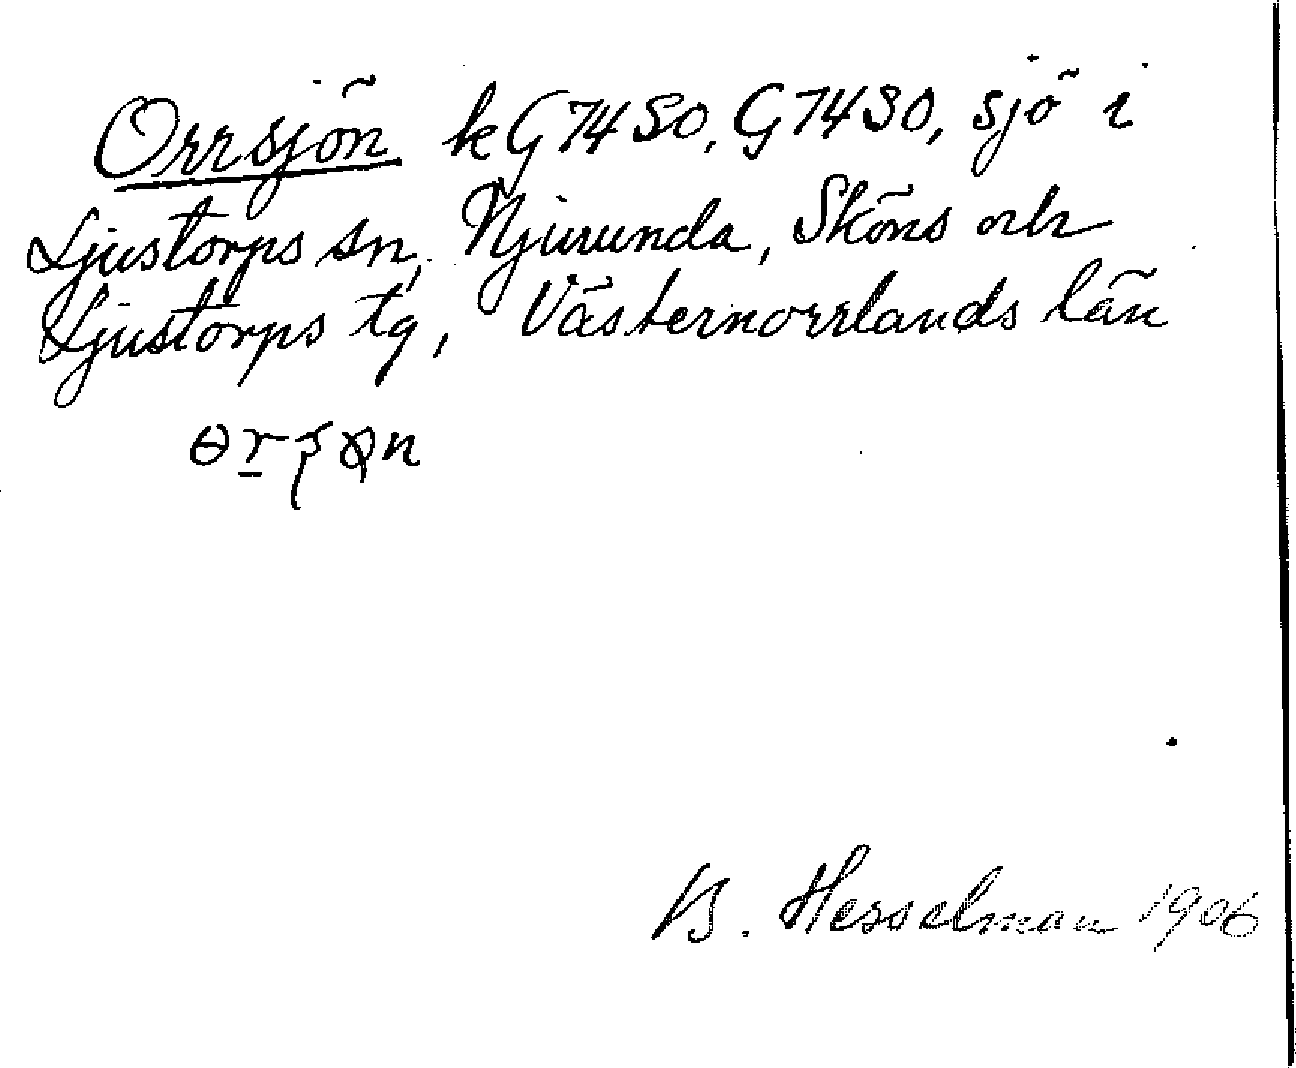 Orrsjön k G 74 SO, G 74 SO, sjö i
Ljustorps sn, Njurunda, Sköns och
Ljustorps tg, Västernorrlands län
B. Hesselman 1906